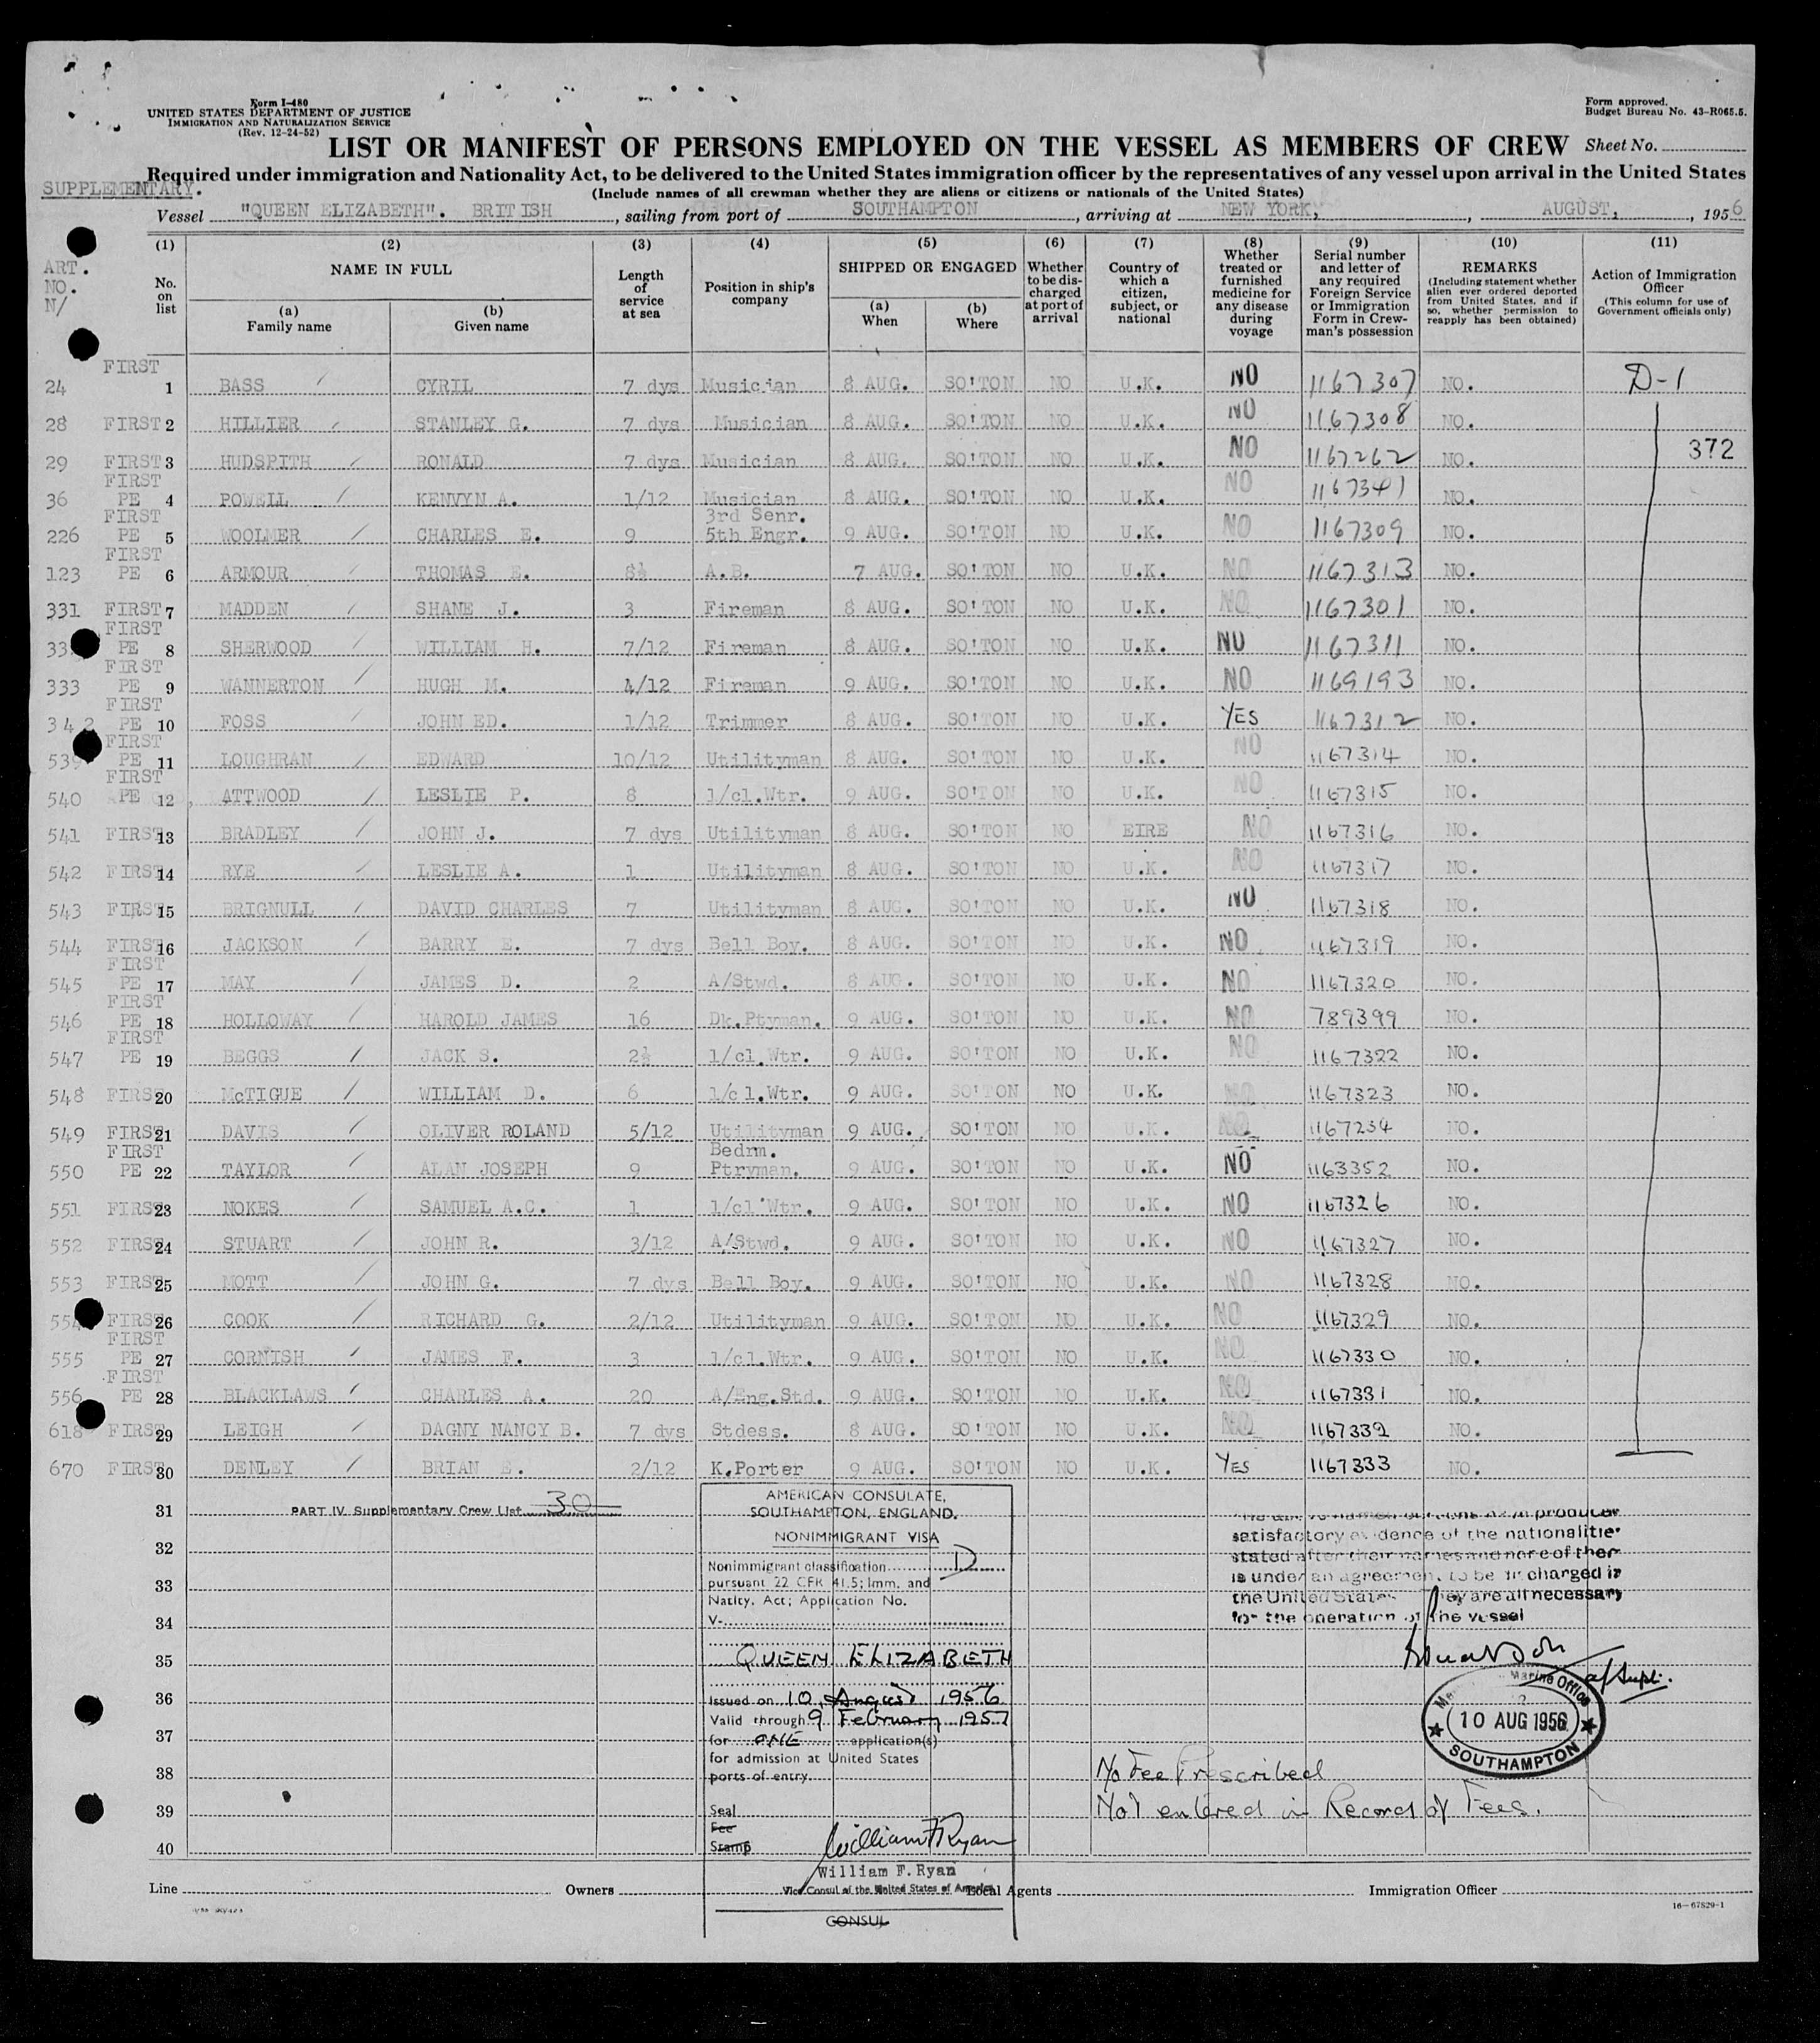 Form I-480
UNITED STATES DEPARTMENT OF JUSTICE
IMMIGRATION AND NATURALIZATION SERVICE
(Rev. 12-24-52)
Form approved.
Budget Bureau No. 43-R065.5.
LIST OR MANIFEST OF PERSONS EMPLOYED ON THE VESSEL AS MEMBERS OF CREW Sheet No.
Required under immigration and Nationality Act, to be delivered to the United States immigration officer by the representatives of any vessel upon arrival in the United States
SUPPLEMENTARY.
(Include names of all crewman whether they are aliens or citizens or nationals of the United States)
Vessel "QUEEN ELIZABETH". BRITISH, sailing from port of SOUTHAMPTON, arriving at NEW YORK, AUGUST, 1956
ART. NO. N/
(1) No. on list
(2) NAME IN FULL (a) Family name (b) Given name
(3) Length of service at sea
(4) Position in ship's company
(5) SHIPPED OR ENGAGED (a) When (b) Where
(6) Whether to be discharged at port of arrival
(7) Country of which a citizen, subject, or national
(8) Whether treated or furnished medicine for any disease during voyage
(9) Serial number and letter of any required Foreign Service or Immigration Form in Crewman's possession
(10) REMARKS (Including statement whether alien ever ordered deported from United States, and if so, whether permission to reapply has been obtained)
(11) Action of Immigration Officer (This column for use of Government officials only)
24 FIRST 1 BASS CYRIL 7 dys Musician 8 AUG. SO'TON NO U.K. NO 1167307 NO. D-1
28 FIRST 2 HILLIER STANLEY G. 7 dys Musician 8 AUG. SO'TON NO U.K. NO 1167308 NO.
29 FIRST 3 HUDSPITH RONALD 7 dys Musician 8 AUG. SO'TON NO U.K. NO 1167262 NO. 372
36 FIRST PE 4 POWELL KENVYN A. 1/12 Musician 8 AUG. SO'TON NO U.K. NO 1167341 NO.
226 FIRST PE 5 WOOLMER CHARLES E. 9 3rd Senr. 5th Engr. 9 AUG. SO'TON NO U.K. NO 1167309 NO.
123 FIRST PE 6 ARMOUR THOMAS E. 8½ A.B. 7 AUG. SO'TON NO U.K. NO 1167313 NO.
331 FIRST 7 MADDEN SHANE J. 3 Fireman 8 AUG. SO'TON NO U.K. NO 1167301 NO.
33 FIRST PE 8 SHERWOOD WILLIAM H. 7/12 Fireman 8 AUG. SO'TON NO U.K. NO 1167311 NO.
333 FIRST PE 9 WANNERTON HUGH M. 4/12 Fireman 9 AUG. SO'TON NO U.K. NO 1169193 NO.
342 FIRST PE 10 FOSS JOHN ED. 1/12 Trimmer 8 AUG. SO'TON NO U.K. YES 1167312 NO.
539 FIRST PE 11 LOUGHRAN EDWARD 10/12 Utilityman 8 AUG. SO'TON NO U.K. NO 1167314 NO.
540 FIRST PE 12 ATTWOOD LESLIE P. 8 1/cl.Wtr. 9 AUG. SO'TON NO U.K. NO 1167315 NO.
541 FIRST 13 BRADLEY JOHN J. 7 dys Utilityman 8 AUG. SO'TON NO EIRE NO 1167316 NO.
542 FIRST 14 RYE LESLIE A. 1 Utilityman 8 AUG. SO'TON NO U.K. NO 1167317 NO.
543 FIRST 15 BRIGNULL DAVID CHARLES 7 Utilityman 8 AUG. SO'TON NO U.K. NO 1167318 NO.
544 FIRST 16 JACKSON BARRY E. 7 dys Bell Boy. 8 AUG. SO'TON NO U.K. NO 1167319 NO.
545 FIRST PE 17 MAY JAMES D. 2 A/Stwd. 8 AUG. SO'TON NO U.K. NO 1167320 NO.
546 FIRST PE 18 HOLLOWAY HAROLD JAMES 16 Dk.Ptyman. 9 AUG. SO'TON NO U.K. NO 789399 NO.
547 FIRST PE 19 BEGGS JACK S. 2½ 1/cl.Wtr. 9 AUG. SO'TON NO U.K. NO 1167322 NO.
548 FIRST 20 McTIGUE WILLIAM D. 6 1/cl.Wtr. 9 AUG. SO'TON NO U.K. NO 1167323 NO.
549 FIRST 21 DAVIS OLIVER ROLAND 5/12 Utilityman 9 AUG. SO'TON NO U.K. NO 1167234 NO.
550 FIRST PE 22 TAYLOR ALAN JOSEPH 9 Bedrm. Ptryman. 9 AUG. SO'TON NO U.K. NO 1163352 NO.
551 FIRST 23 NOKES SAMUEL A.C. 1 1/cl.Wtr. 9 AUG. SO'TON NO U.K. NO 1167326 NO.
552 FIRST 24 STUART JOHN R. 3/12 A/Stwd. 9 AUG. SO'TON NO U.K. NO 1167327 NO.
553 FIRST 25 MOTT JOHN G. 7 dys Bell Boy. 9 AUG. SO'TON NO U.K. NO 1167328 NO.
554 FIRST 26 COOK RICHARD G. 2/12 Utilityman 9 AUG. SO'TON NO U.K. NO 1167329 NO.
555 FIRST PE 27 CORNISH JAMES F. 3 1/cl.Wtr. 9 AUG. SO'TON NO U.K. NO 1167330 NO.
556 FIRST PE 28 BLACKLAWS CHARLES A. 20 A/Eng.Std. 9 AUG. SO'TON NO U.K. NO 1167331 NO.
618 FIRST 29 LEIGH DAGNY NANCY B. 7 dys Stdess. 8 AUG. SO'TON NO U.K. NO 1167332 NO.
670 FIRST 30 DENLEY BRIAN E. 2/12 K.Porter 9 AUG. SO'TON NO U.K. YES 1167333 NO.
31 PART IV. Supplementary Crew List 30
32
33
34
35
36
37
38
39
40
AMERICAN CONSULATE,
SOUTHAMPTON, ENGLAND.
NONIMMIGRANT VISA
Nonimmigrant classification D
pursuant 22 CFR 41.5; Imm. and
Natity. Act; Application No.
V-
QUEEN ELIZABETH
Issued on 10 August 1956
Valid through 9 February 1957
for ONE application(s)
for admission at United States
ports of entry.
Seal
Fee
Stamp
William F Ryan
William F. Ryan
Vice Consul of the United States of America
CONSUL
satisfactory evidence of the nationalities
stated after their names and none of them
is under an agreement to be discharged in
the United States They are all necessary
for the operation of the vessel
a/Supt.
Marine Office
10 AUG 1956
SOUTHAMPTON
No Fee Prescribed
Not entered in Record of Fees.
Line Owners Local Agents Immigration Officer
16-67829-1